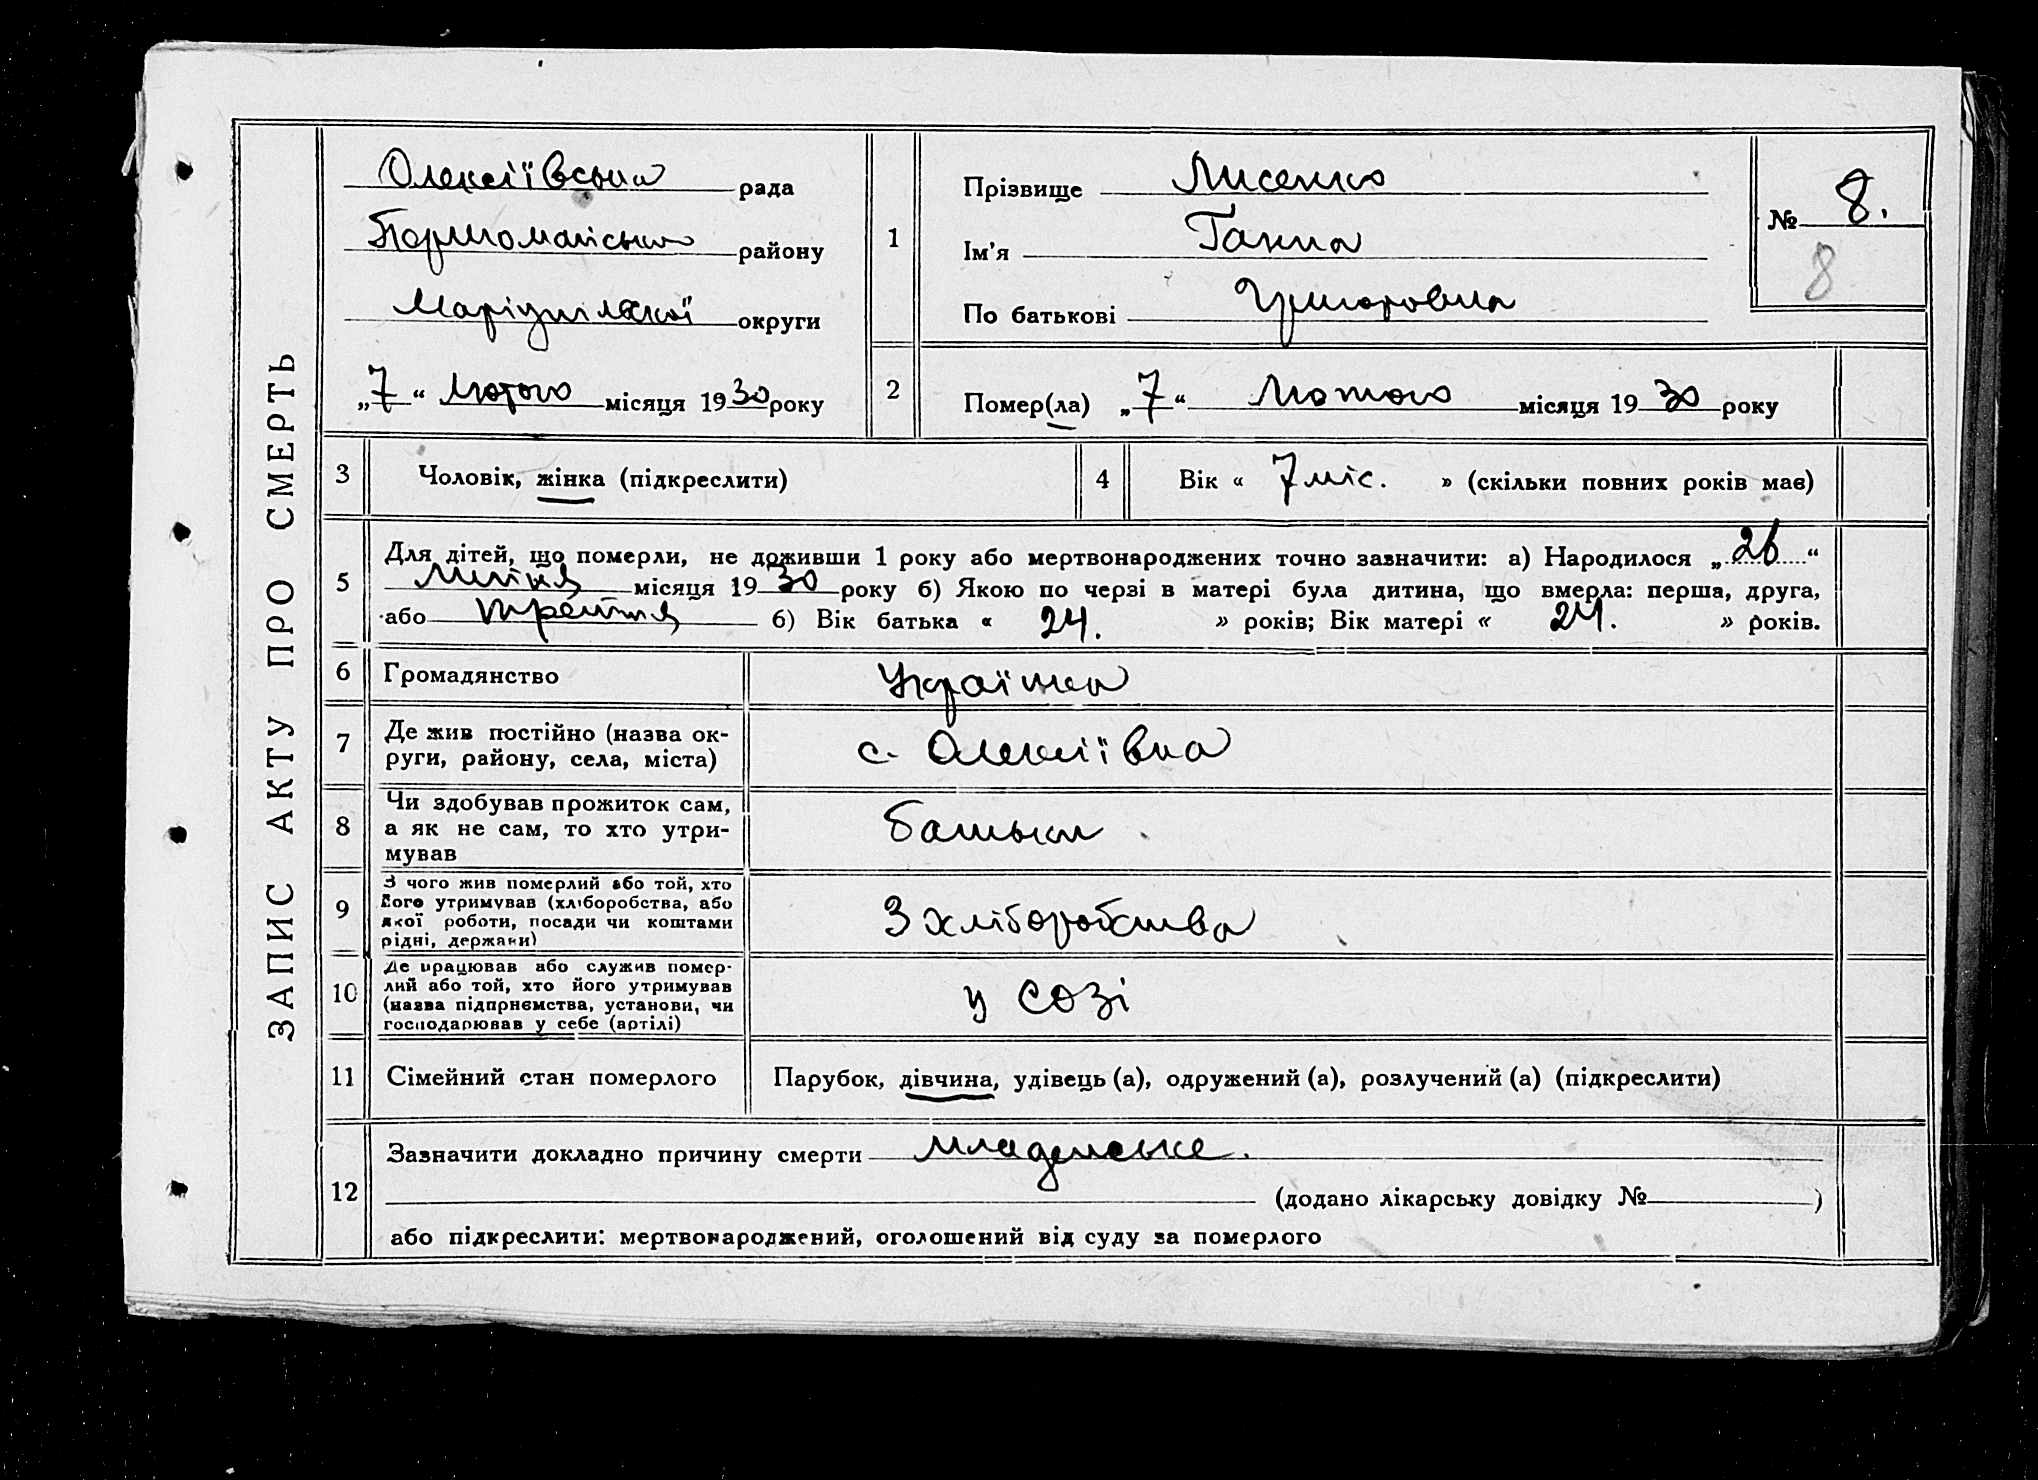 ЗАПИС АКТУ ПРО СМЕРТЬ
Олексіївська рада
Першомайського району
Маріупільської округи
„7“ Лютого місяця 1930 року
1
Прізвище Лисенко
Ім'я Ганна
По батькові Григоровна
№ 8.
8
2
Помер(ла) „7“ Лютого місяця 1930 року
3
Чоловік, жінка (підкреслити)
4
Вік « 7 міс. » (скільки повних років має)
5
Для дітей, що померли, не доживши 1 року або мертвонароджених точно зазначити: а) Народилося „26“
липня місяця 1930 року б) Якою по черзі в матері була дитина, що вмерла: перша, друга,
або третя б) Вік батька « 24. » років; Вік матері « 24. » років.
6
Громадянство
Українка
7
Де жив постійно (назва ок-
руги, району, села, міста)
с. Олексіївка
8
Чи здобував прожиток сам,
а як не сам, то хто утри-
мував
батьки
9
З чого жив померлий або той, хто
його утримував (хліборобства, або
якої роботи, посади чи коштами
рідні, держави)
З хліборобства
10
Де працював або служив помер-
лий або той, хто його утримував
(назва підприємства, установи, чи
господарював у себе (артілі)
у СОЗі
11
Сімейний стан померлого
Парубок, дівчина, удівець (а), одружений (а), розлучений (а) (підкреслити)
12
Зазначити докладно причину смерти младенське.
(додано лікарську довідку № )
або підкреслити: мертвонароджений, оголошений від суду за померлого